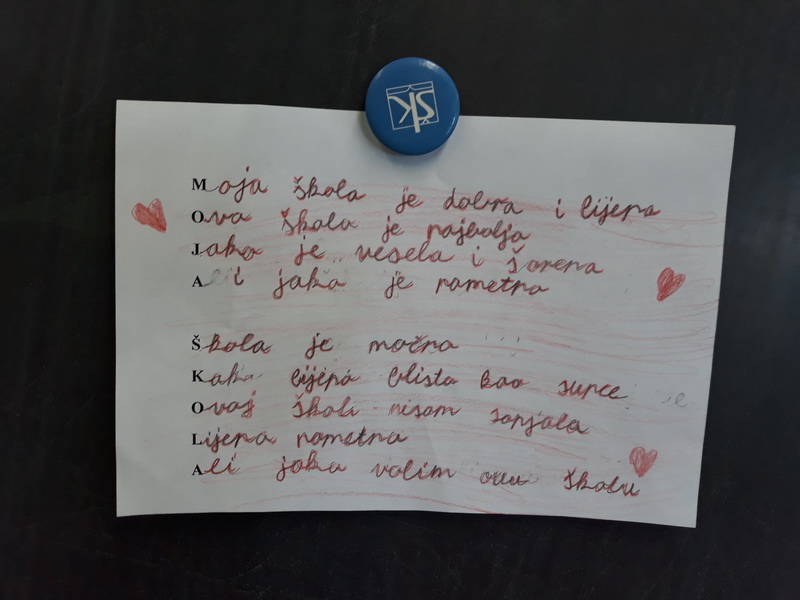 ŠK
Moja škola je dobra i lijepa
Ova škola je najbolja
Jako je vesela i šarena
Ali jako je pametna
Škola je moćna
Kako lijepo blista kao sunce
Ovoj školi nisam sanjala
Lijepa pametna
Ali jako volim ovu školu